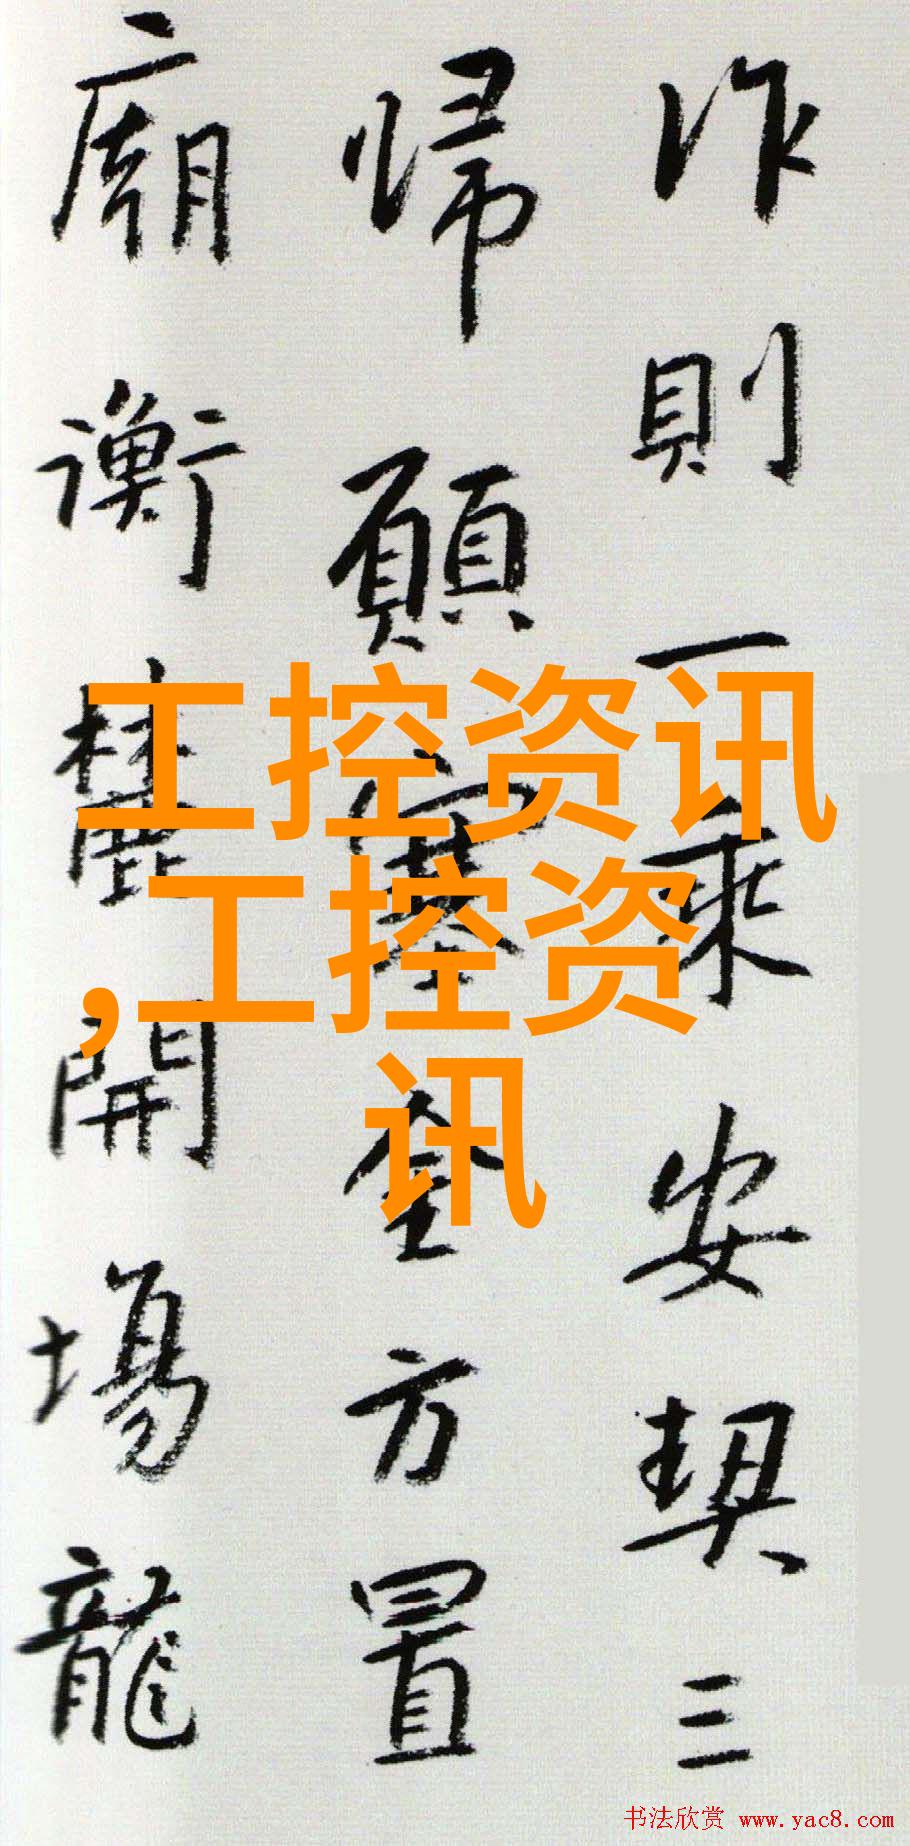 作則一乘安契三
歸願寨登方置
廟衡麓開場龍
工控资讯
,工控资
讯
书法欣赏 www.yac8.com